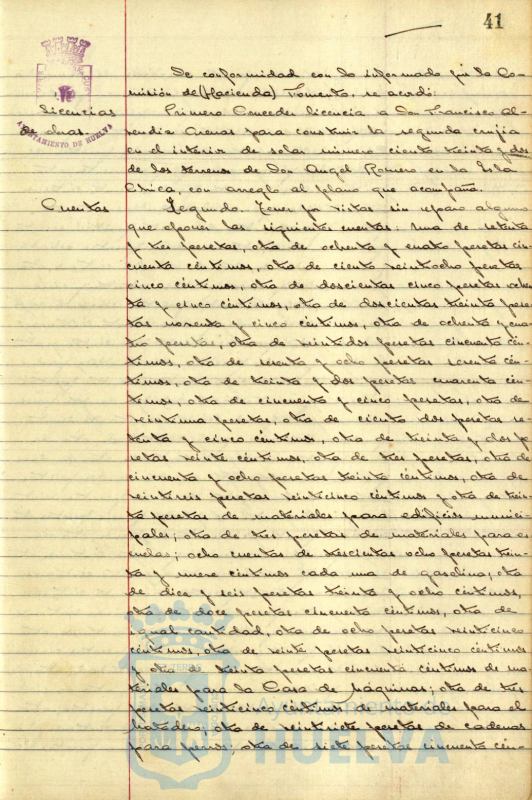 41
De conformidad con lo informado por la Co-
misión de (Hacienda) Fomento, se acordó:
Licencias
Primero. Conceder licencia a Don Francisco Al-
obras
mendia Arenas para construir la segunda crujia
AYUNTAMIENTO DE HUELVA
en el interior de solar número ciento treinta y dos
de los terrenos de Don Angel Romero en la Isla
Chica, con arreglo al plano que acompaña.
Cuentas
Segundo. Tener por vistas sin reparo alguno
que oponer las siguientes cuentas: Una de setenta
y tres pesetas, otra de ochenta y cuatro pesetas cin-
cuenta céntimos, otra de ciento veintiocho pesetas
cinco céntimos, otra de doscientas cinco pesetas ochen-
ta y cinco céntimos, otra de doscientas treinta pese-
tas noventa y cinco céntimos, otra de ochenta y cua-
tro pesetas, otra de veintidos pesetas cincuenta cén-
timos, otra de y ocho pesetas cén-
timos, otra de treinta y dos pesetas cuarenta cén-
timos, otra de cincuenta y cinco pesetas, otra de
veintiuna pesetas, otra de ciento dos pesetas se-
tenta y cinco céntimos, otra de treinta y dos pe-
setas veinte céntimos, otra de tres pesetas, otra de
cincuenta y ocho pesetas treinta céntimos, otra de
veintiseis pesetas veinticinco céntimos y otra de trein-
ta pesetas de materiales para edificios munici-
pales; otra de tres pesetas de materiales para es-
cuelas; ocho cuentas de trescientas ocho pesetas trein-
ta y nueve céntimos cada una de gasolina; otra
de diez y seis pesetas treinta y ocho céntimos,
otra de doce pesetas cincuenta céntimos, otra de
igual cantidad, otra de ocho pesetas veinticinco
céntimos, otra de veinte pesetas veinticinco céntimos
y otra de treinta pesetas cincuenta céntimos de ma-
teriales para la Casa de Máquinas; otra de tres
pesetas veinticinco céntimos de materiales para el
Matadero; otra de veintisiete pesetas de cadenas
para perros; otra de siete pesetas cincuenta cén-
HUELVA